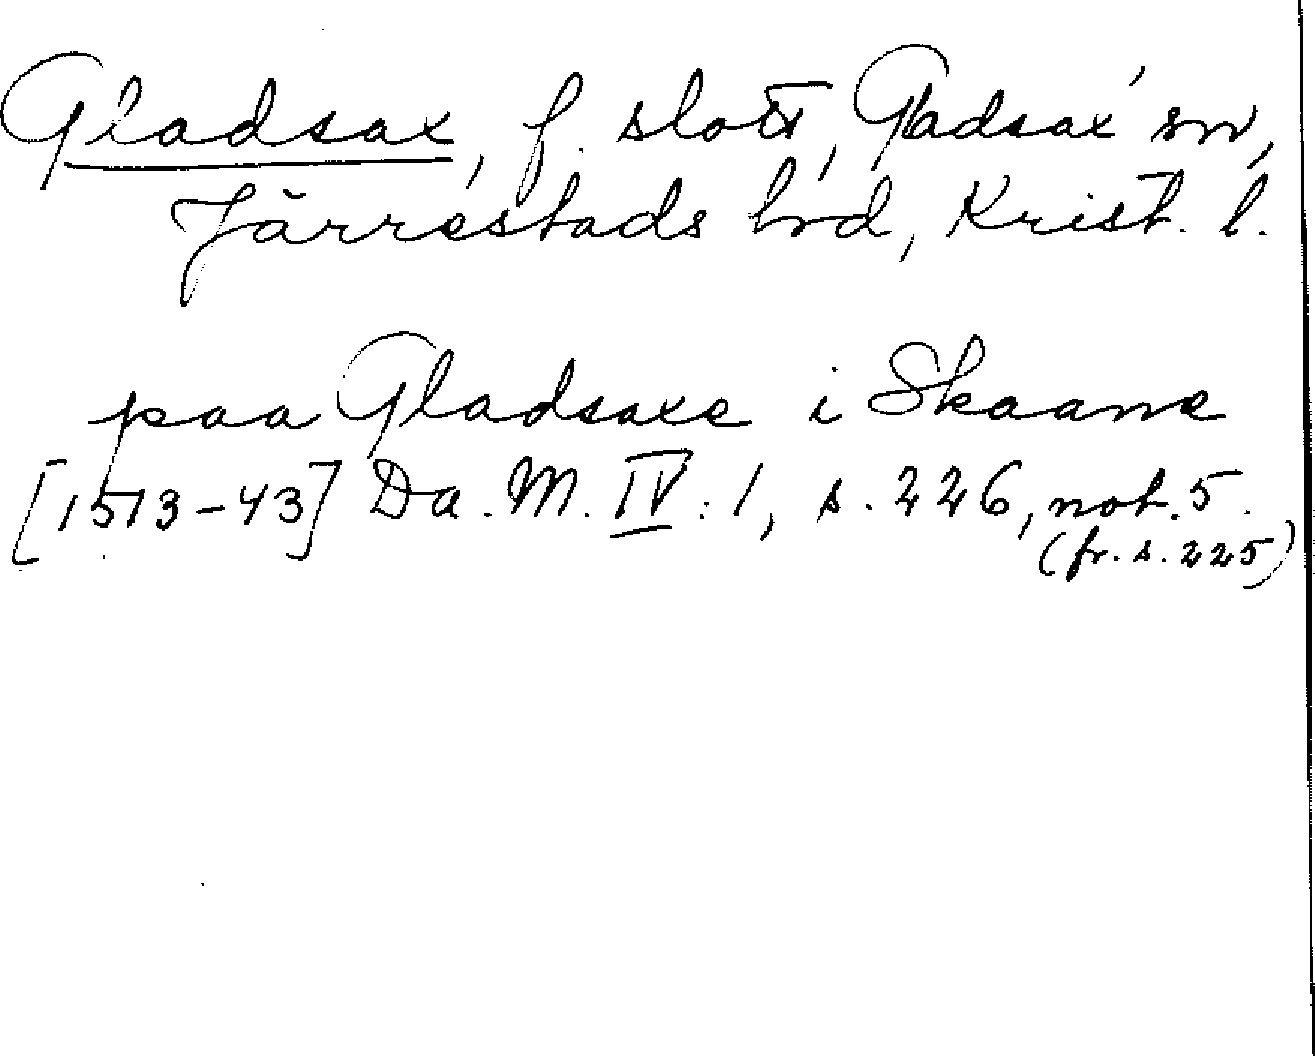 Gladsax, f. slott, Gladsax sn,
Järrestads hd, Krist. l.
paa Gladsaxe i Skaane
[1513-43] Da. M. IV: 1, s. 226, not. 5.
(fr. s. 225)